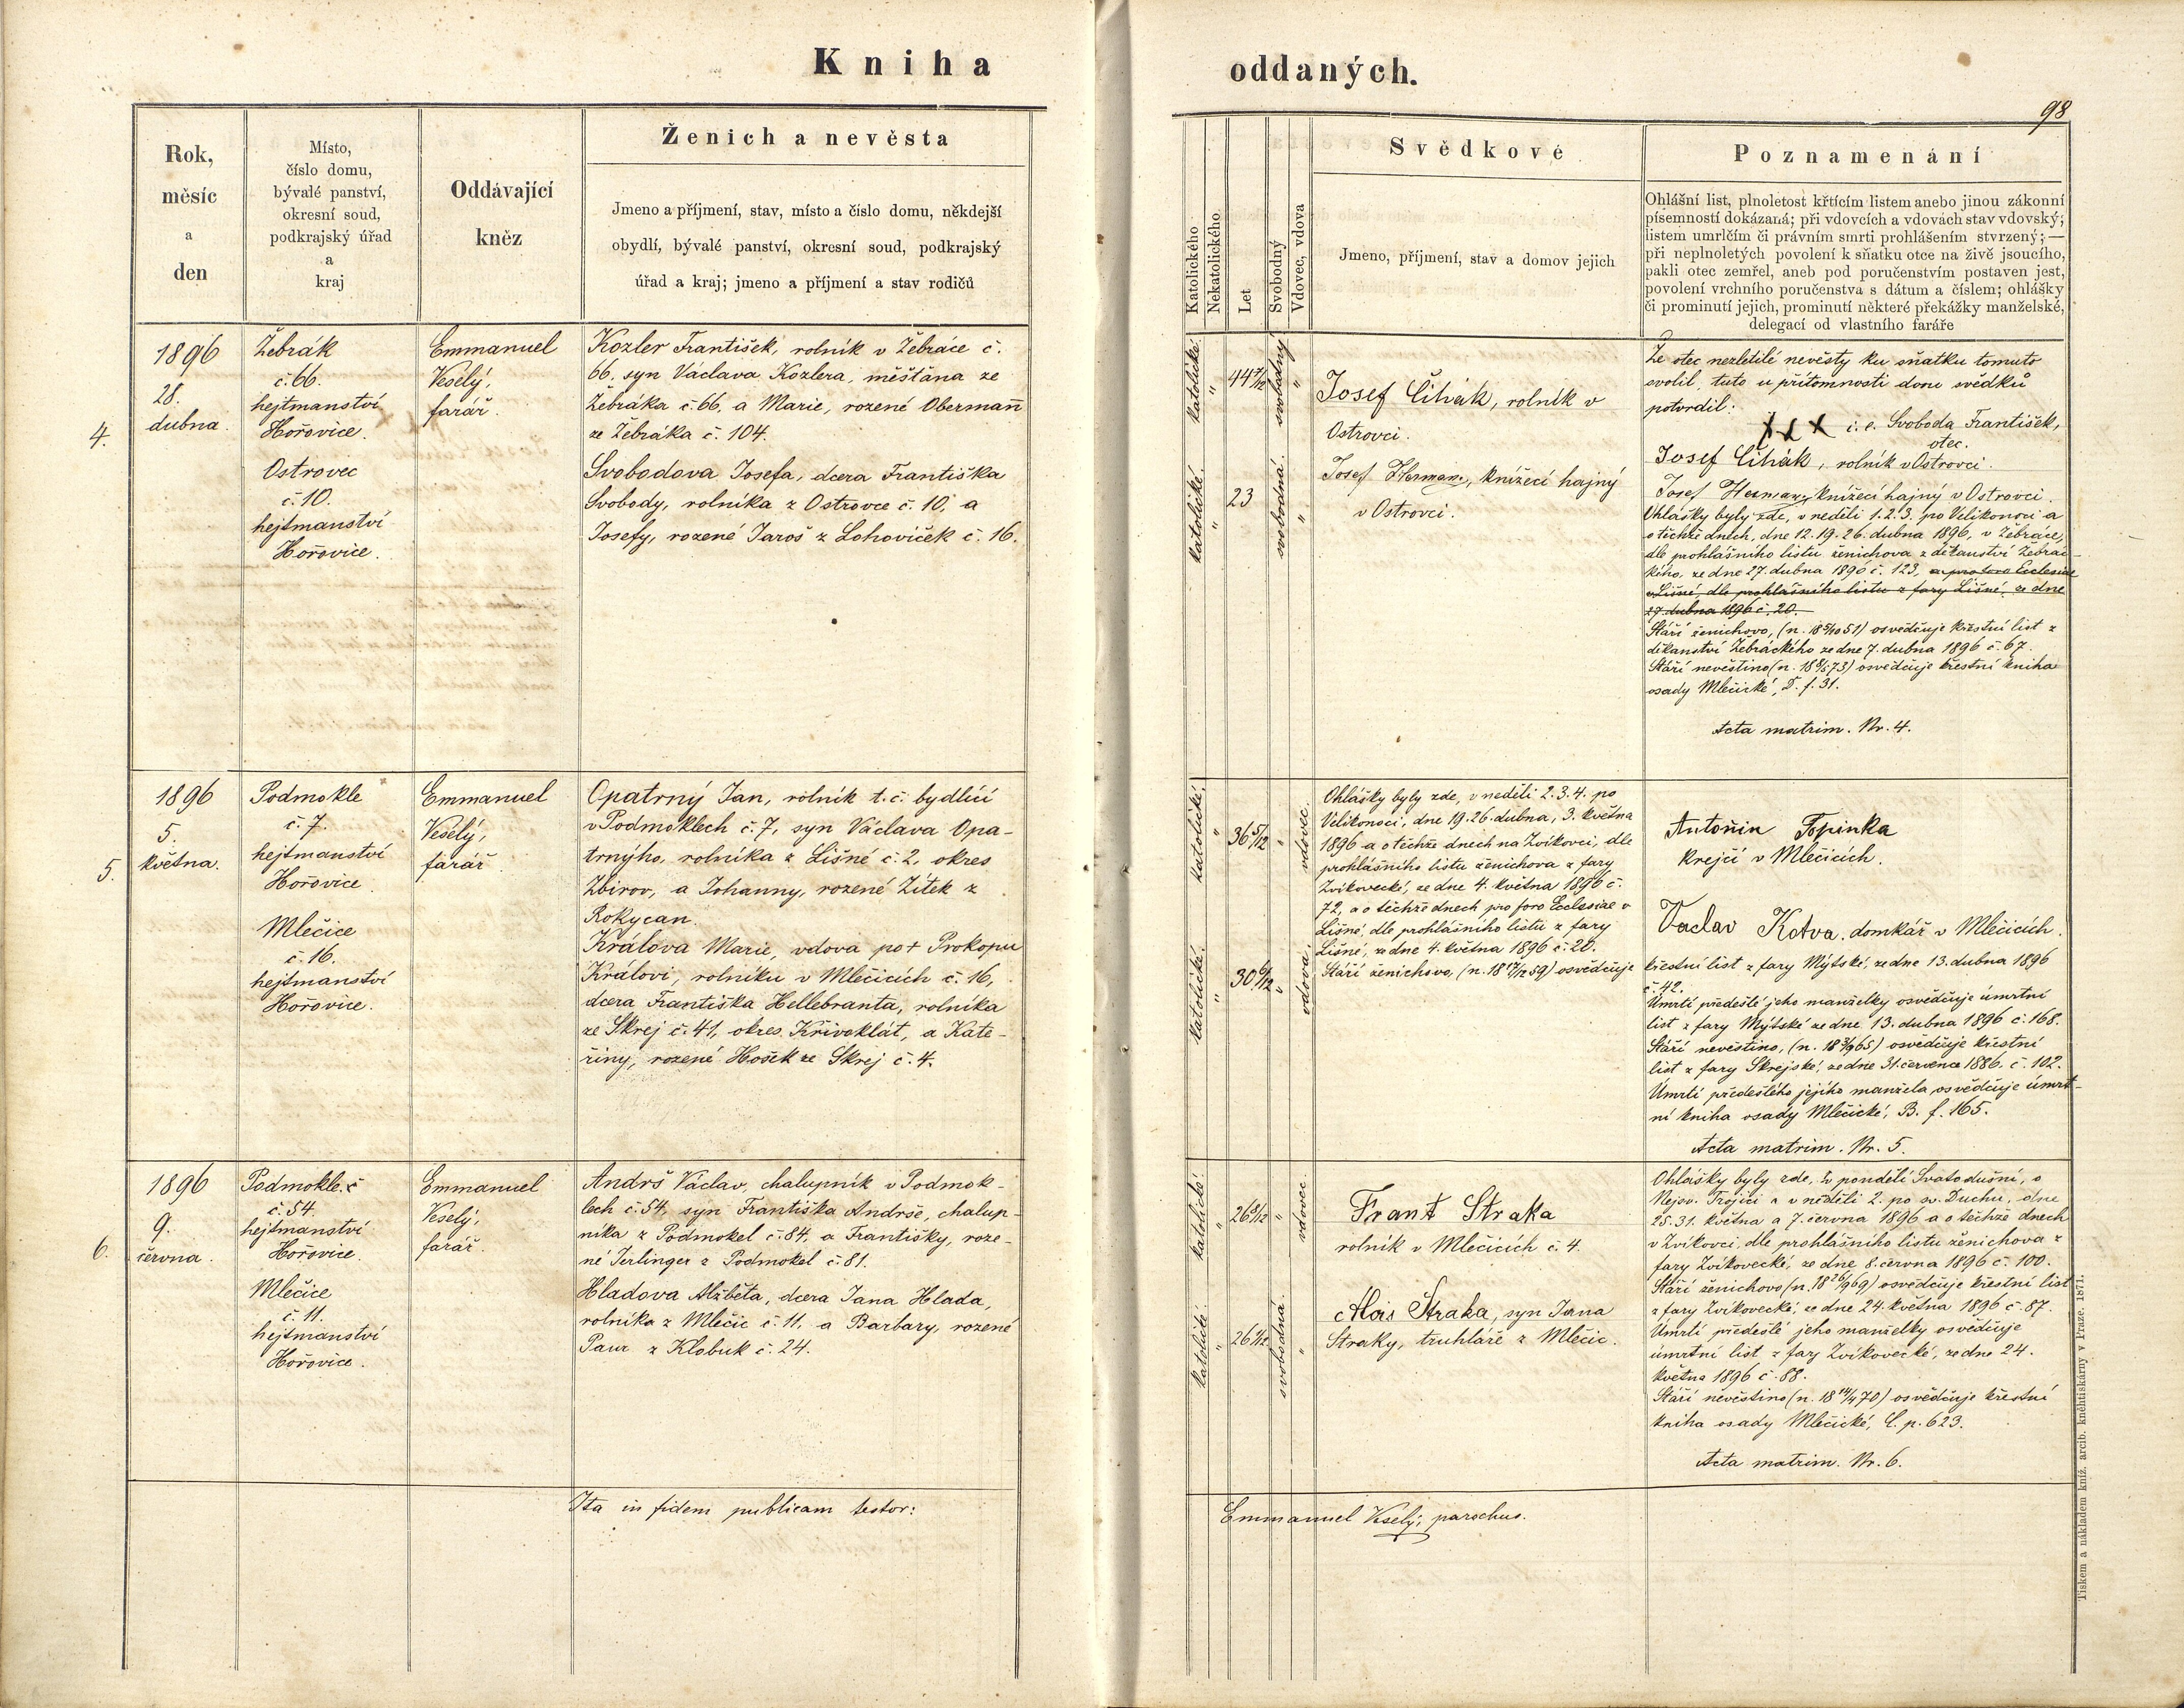 Kniha
oddaných.
98
Rok,
měsíc
a
den
Místo,
číslo domu,
bývalé panství,
okresní soud,
podkrajský úřad
a
kraj
Oddávající
kněz
Ženich a nevěsta
Jmeno a příjmení, stav, místo a číslo domu, někdejší
obydlí, bývalé panství, okresní soud, podkrajský
úřad a kraj; jmeno a příjmení a stav rodičů
Katolického
Nekatolického
Let
Svobodný
Vdovec, vdova
Svědkové
Jmeno, příjmení, stav a domov jejich
Poznamenání
Ohlášní list, plnoletost křtícím listem anebo jinou zákonní
písemností dokázaná; při vdovcích a vdovách stav vdovský;
listem umrlčím či právním smrti prohlášením stvrzený; —
při neplnoletých povolení k sňatku otce na živě jsoucího,
pakli otec zemřel, aneb pod poručenstvím postaven jest,
povolení vrchního poručenstva s dátum a číslem; ohlášky
či prominutí jejich, prominutí některé překážky manželské,
delegací od vlastního faráře
4.
1896
28.
dubna.
Žebrák
č. 66.
hejtmanství
Hořovice.
Ostrovec
č. 10.
hejtmanství
Hořovice.
Emmanuel
Veselý,
farář.
Kozler František, rolník v Žebráce č.
66, syn Václava Kozlera, měšťana ze
Žebráka č. 66, a Marie, rozené Obermann
ze Žebráka č. 104.
Svobodova Josefa, dcera Františka
Svobody, rolníka z Ostrovce č. 10, a
Josefy, rozené Jaroš z Lohoviček č. 16.
katolické.
"
44 7/12
svobodný
"
katolické.
"
23
svobodná.
"
Josef Čihák, rolník v
Ostrovci.
Josef Herman, knížecí hajný
v Ostrovci.
Že otec nezletilé nevěsty ku sňatku tomuto
svolil, tuto u přítomnosti dvou svědků
potvrdil:
XXX i. e. Svoboda František,
otec.
Josef Čihák, rolník v Ostrovci.
Josef Herman, knížecí hajný v Ostrovci.
Ohlášky byly zde, v neděli 1. 2. 3. po Velikonoci a
o těchže dnech, dne 12. 19. 26. dubna 1896, v Žebráce,
dle prohlášního listu ženichova z děkanství Žebrác-
kého, ze dne 27. dubna 1896 č. 123, a pro foro Ecclesiae
v Lišné, dle prohlášního listu z fary Lišné, ze dne
27. dubna 1896 č. 20.
Stáří ženichovo, (n. 18 5/10 51) osvědčuje křestní list z
děkanství Žebráckého ze dne 7. dubna 1896 č. 67.
Stáří nevěstino (n. 18 /5 73) osvědčuje křestní kniha
osady Mlečické, D. f. 31.
Acta matrim. Nr. 4.
5.
1896
5.
května.
Podmokle
č. 7.
hejtmanství
Hořovice.
Mlečice
č. 16.
hejtmanství
Hořovice.
Emmanuel
Veselý,
farář
Opatrný Jan, rolník t. č. bydlící
v Podmoklech č. 7, syn Václava Opa-
trnýho, rolníka z Lišné č. 2, okres
Zbirov, a Johanny, rozené Žítek z
Rokycan.
Králova Marie, vdova po † Prokopu
Královi, rolníku v Mlečicích č. 16,
dcera Františka Hellebranta, rolníka
ze Skrej č. 41, okres Křivoklát, a Kate-
řiny, rozené Hošek ze Skrej č. 4.
katolické.
"
36 5/12
"
vdovec.
katolické.
"
30 /12
"
vdova.
Ohlášky byly zde, v neděli 2. 3. 4. po
Velikonoci, dne 19. 26. dubna, 3. května
1896 a o těchže dnech na Zvíkovci, dle
prohlášního listu ženichova z fary
Zvíkovecké, ze dne 4. května 1896 č.
72, a o těchže dnech pro foro Ecclesiae v
Lišné, dle prohlášního listu z fary
Lišné, ze dne 4. května 1896 č. 20.
Stáří ženichovo, (n. 18 17/12 59) osvědčuje
Antonín Topinka
krejčí v Mlečicích.
Vaclav Kotva, domkář v Mlečicích.
křestní list z fary Mýtské, ze dne 13. dubna 1896
č. 42.
Úmrtí předešlé jeho manželky osvědčuje úmrtní
list z fary Mýtské ze dne 13. dubna 1896 č. 168.
Stáří nevěstino, (n. 18 3/9 65) osvědčuje křestní
list z fary Skrejské, ze dne 31. července 1886, č. 102.
Úmrtí předešlého jejího manžela osvědčuje úmrt-
ní kniha osady Mlečické, B. f. 165.
Acta matrim. Nr. 5.
6.
1896
9.
června.
Podmokle č
č. 54.
hejtmanství
Hořovice.
Mlečice
č. 11.
hejtmanství
Hořovice.
Emmanuel
Veselý,
farář.
Andrš Václav, chalupník v Podmok-
lech č. 54, syn Františka Andrše, chalup-
níka z Podmokel č. 84, a Františky, roze-
né Terlinger z Podmokel č. 81.
Hladova Alžběta, dcera Jana Hlada,
rolníka z Mlečic č. 11, a Barbary, rozené
Paur z Klobuk č. 24.
katolické.
"
26 8/12
"
vdovec.
katolické.
"
26 /12
svobodná.
"
Frant Straka
rolník v Mlečicích č. 4.
Alois Straka, syn Jana
Straky, truhláře z Mlečic.
Ohlášky byly zde, v pondělí Svatodušní, o
Nejsv. Trojici a v neděli 2. po sv. Duchu, dne
25. 31. května a 7. června 1896 a o těchže dnech
v Zvíkovci, dle prohlášního listu ženichova z
fary Zvíkovecké, ze dne 8. června 1896 č. 100.
Stáří ženichovo (n. 18 26/9 69) osvědčuje křestní list
z fary Zvíkovecké, ze dne 24. května 1896 č. 87.
Úmrtí předešlé jeho manželky osvědčuje
úmrtní list z fary Zvíkovecké, ze dne 24.
května 1896 č. 88.
Stáří nevěstino (n. 18 /4 70) osvědčuje křestní
kniha osady Mlečické, C. p. 623.
Acta matrim. Nr. 6.
Ita in fidem publicam testor:
Emmanuel Veselý, parochus.
Tiskem a nákladem kníž. arcib. kněhtiskárny v Praze. 1871.